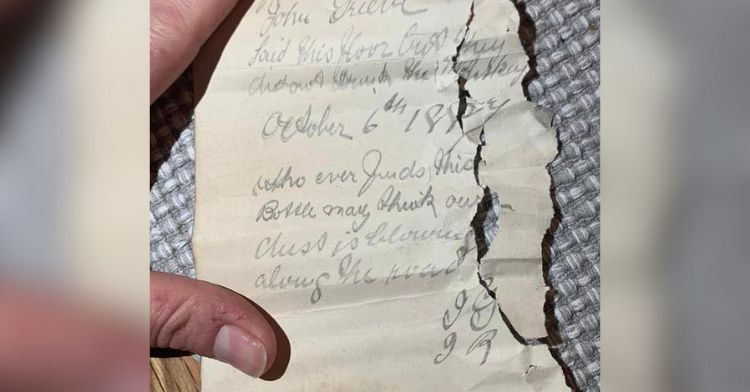 John Grieve
laid this floor but they
did not drink the Whiskey
October 6th 1887
Who ever finds this
Bottle may think our
dust is blowing
along the road
J G
J R